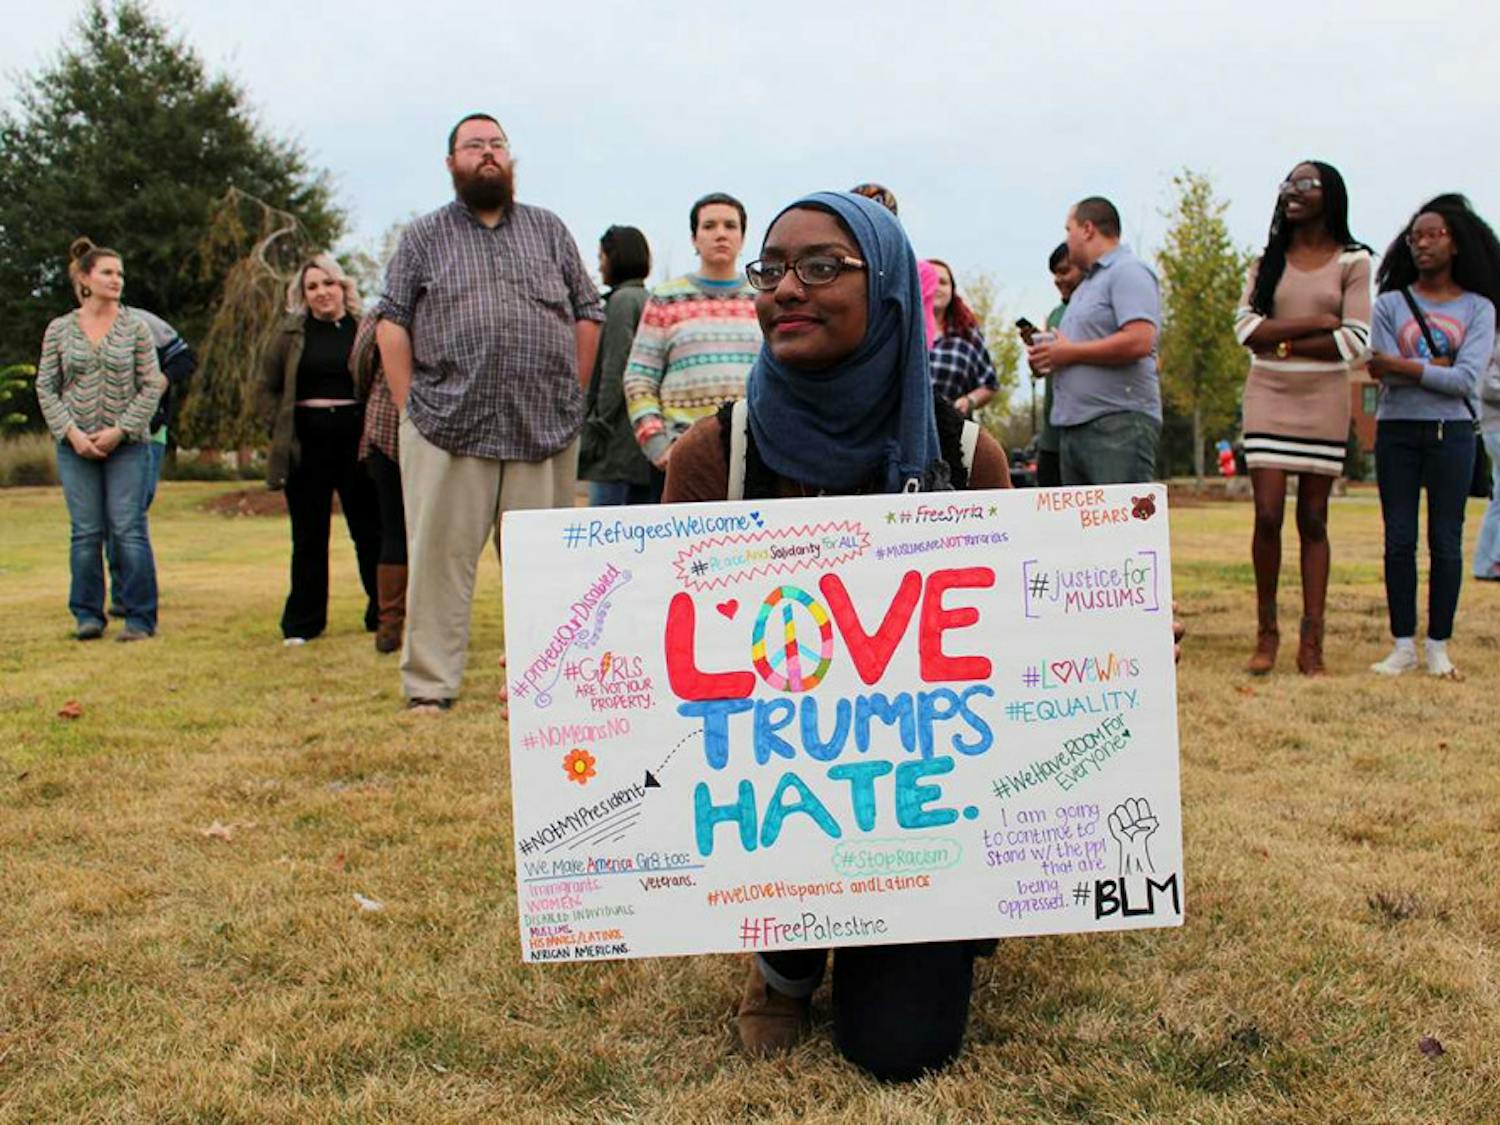 #RefugeesWelcome
#PeaceAndSolidarityForALL
#FreeSyria
#MUSLIMSAreNOTTerrorists
MERCER
BEARS
#protectOurDisabled
#GIRLS
ARE NOT YOUR
PROPERTY.
#NOMeansNO
#NOTMYPresident
LOVE
TRUMPS
HATE.
#justicefor
MUSLIMS
#LOVEWins
#EQUALITY.
#WeHaveROOMFor
Everyone
I am going
to continue to
Stand w/ the ppl
that are
being
oppressed.
#BLM
We Make America Gr8 too:
Immigrants
Veterans.
WOMEN
DISABLED INDIVIDUALS
MUSLIMS
HISPANICS/LATINOS
AFRICAN AMERICANS.
#StopRacism
#WeLOVEHispanics and Latinos
#FreePalestine